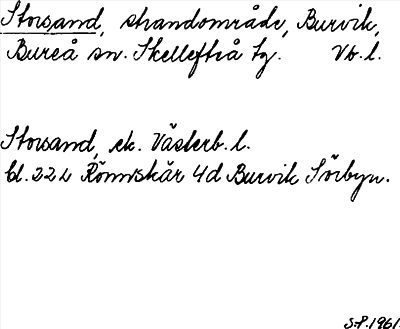 Storsand, strandområde, Burvik,
Bureå sn. Skellefteå tg. Vb.l.
Storsand, ek. Västerb.l.
bl. 22 L Rönnskär 4d Burvik Sörbyn.
S.P. 1961.